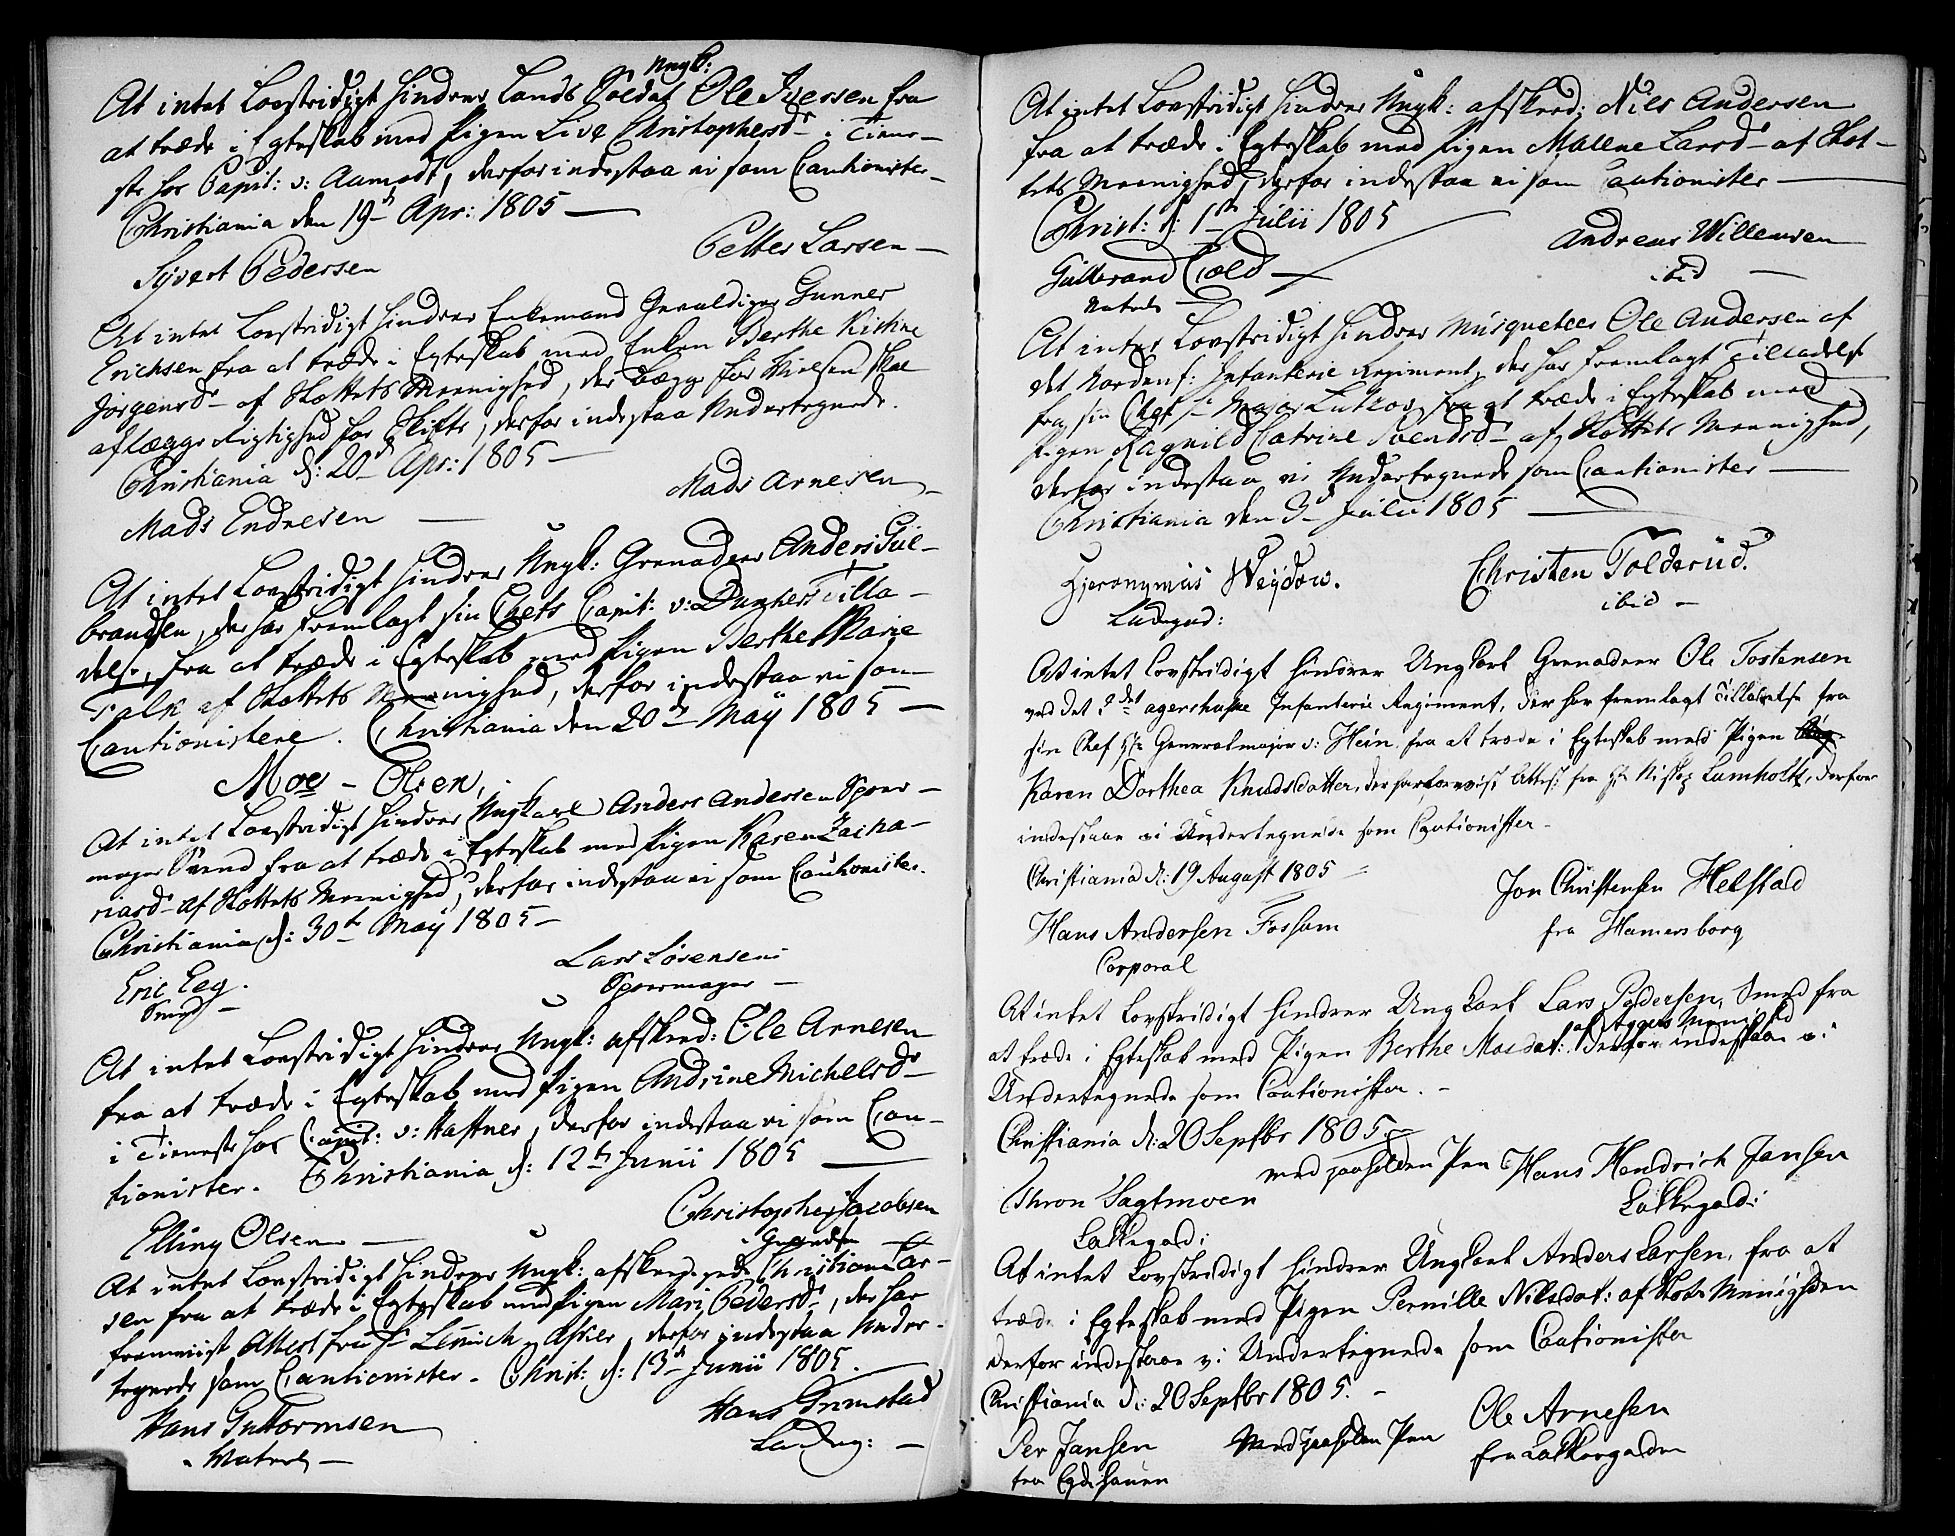 Ungk:
At intet Lovstridigt hindrer Land Soldat Ole Iversen fra
at træde i Egteskab med Pigen Live Christophersd^r i Tiene-
ste hos Capit: v: Aamodt, derfor indestaa vi som Cautionister
Christiania den 19^de Apr: 1805
Petter Larsen
Syvert Pedersen
At intet Lovstridigt hindrer Enkemand Gevaldiger Gunner
Erichsen fra at træde i Egteskab med Enken Berthe Kistine
Jörgensd^r af Slottets Meenighed, der begge for Skiesen skal
aflægge Rigtighed for Skifte, derfor indestaa Undertegnede.
Christiania d: 20^d Apr: 1805
Mads Arnesen
Mads Endresen
At intet Lovstridigt hindrer Ungk: Grenadeer Anders Gul-
brandsen, der har fremlagt sin Chefs Capit: v: Tilla-
delse, fra at træde i Egteskab med Pigen Berthe Marie
Falk af Slottets Meenighed, derfor indestaa vi som
Cautionistere. Christiania den 20^de Maÿ 1805
Moe - Olsen,
At intet Lovstridigt hindrer Ungkarl Anders Andersen Spore-
mager Svend fra at træde i Egteskab med Pigen Karen Zacha-
riasd^r af Slottets Meenighed, derfor indestaa vi som Cautionister.
Christiania d: 30^te Maÿ 1805
Lars Sörensen
Eric Eeg.
Sporemager
Smed
At intet Lovstridigt hindrer Ungk: afskeed: Ole Arnesen
fra at træde i Egteskab med Pigen Andrine Michelsd^r
i Tieneste hos Capit: v: Haffner, derfor indestaa vi som Cau-
tionister. Christiania d: 12^te Junii 1805
Christopher Jacobsen
Elling Olsen
At intet Lovstridigt hindrer Ungk: afskeedigede Christian Lar-
sen fra at træde i Egteskab med Pigen Mari Pedersd^r, der har
fremviist Attest fra H^r Lemich Asker, derfor indestaa Under-
tegnede som Cautionister. Christ: d: 13^de Junii 1805.
Hans Grimstad
Hans Guttormsen
Ladeg:
Waterl
At intet Lovstridigt hindrer Ungk: afskeed: Niels Andersen
fra at træde i Egteskab med Pigen Malene Larsd^r af Slot-
tets Meenighed, derfor indestaa vi som Cautionister
Christ: d: 1^ste Julii 1805
Andreas Willemsen
Gulbrand Cold
ibid
At intet Lovstridigt hindrer Musqueteer Ole Andersen af
det Nordenf: Infanterie Regiment, der har fremlagt Tilladelse
fra sin Chef H^r Major Lutzow, fra at træde i Egteskab med
Pigen Ragnild Catrine Svendsd^r af Slottets Meenighed,
derfor indestaa vi Undertegnede som Cautionister
Christiania den 3^d Julii 1805
Hjeronymus Weydow.
Christen Tolderud.
Ladegad:
ibid
At intet lovstridigt hindrer Ungkarl Grenadeer Ole Tostensen
ved det 2^det agershusske Infanterie Regiment, der har fremlagt Tilladelse fra
sin Chef H^r Generalmajor v: Hein fra at træde i Egteskab med Pigen
Karen Dorthea Knudsdatter, der har forevist Attest fra H^r Lumholtz, derfor
indestaae vi Undertegnede som Cautionister
Christiania d: 19 August 1805
Jon Christensen Helstad
Hans Andersen Fossum
fra Hamersborg
Corporal
At intet Lovstridigt hindrer Ungkarl Lars Pedersen, Smed fra
af Aggers Menighed
at træde i Egteskab med Pigen Berthe Masdat: derfor indestaae vi
Undertegnede som Cautionister.
Christiania d: 20 Septbr 1805
med paaholden Pen
Hans Hendrich Jansen
Thron Sagtmoen
Lakkegad:
Lakkegad:
At intet Lovstridigt hindrer Ungkarl Anders Larsen, fra at
træde i Egteskab med Pigen Pernille Nilsdat: af Slots Menigheden
derfor indestaae vi Undertegnede som Cautionister
Christiania d: 20 Septbr 1805.
Ole Arnesen
Per Jansen
Med paaholden Pen
fra Lakkegaden
fra Egdehauen